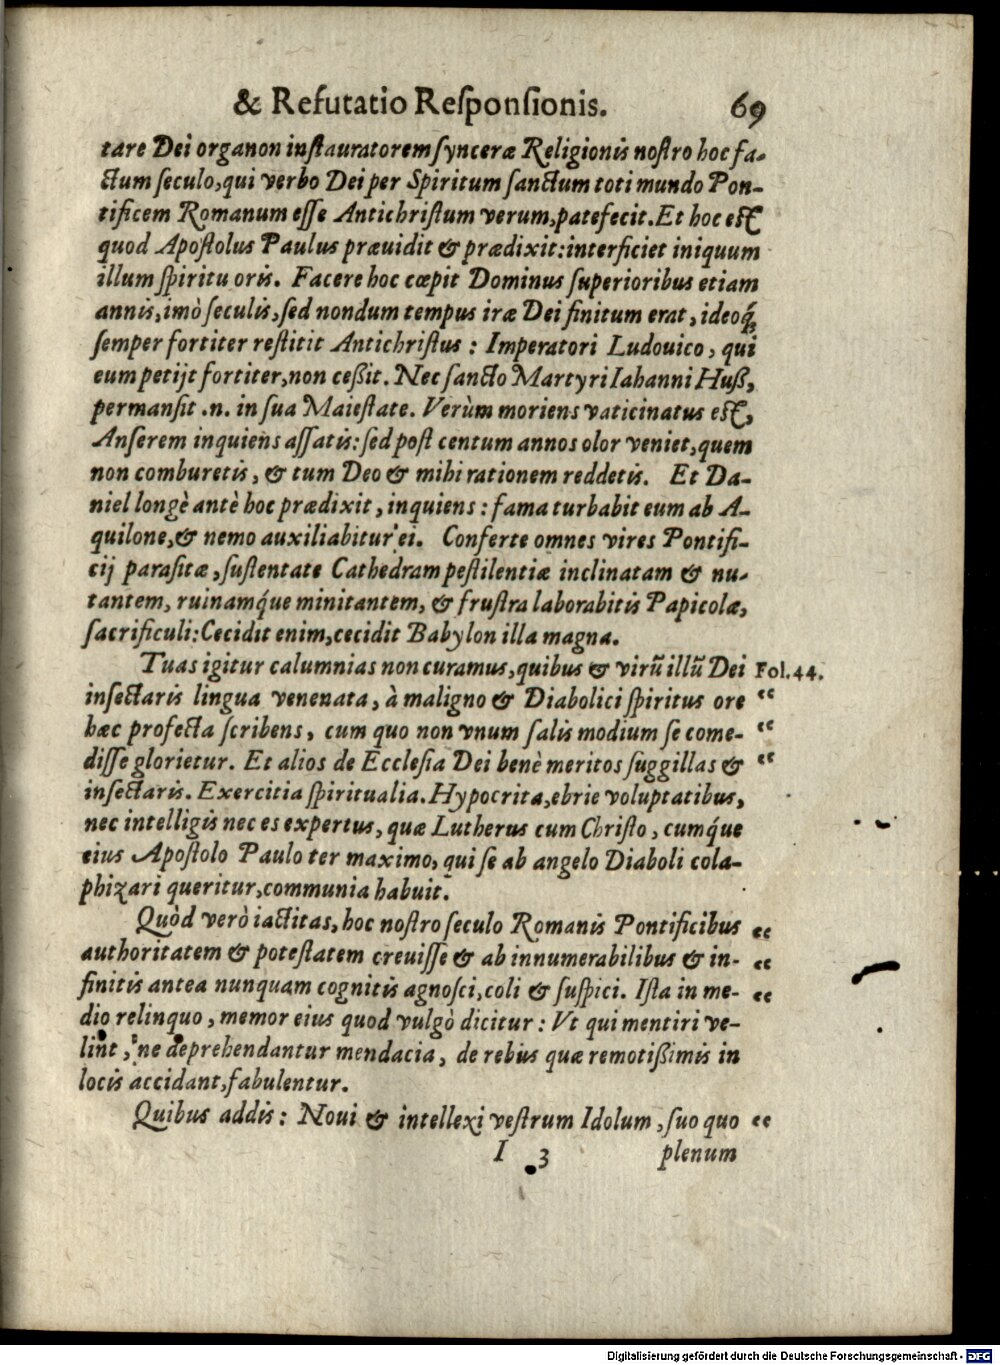 & Refutatio Reſponſionis. 69
tare Dei organon inſtauratorem ſynceræ Religionis noſtro hoc fa-
ctum ſeculo, qui verbo Dei per Spiritum ſanctum toti mundo Pon-
tificem Romanum eſſe Antichriſtum verum, patefecit. Et hoc eſt
quod Apoſtolus Paulus præuidit & prædixit: interficiet iniquum
illum ſpiritu oris. Facere hoc cœpit Dominus ſuperioribus etiam
annis, imò ſeculis, ſed nondum tempus iræ Dei finitum erat, ideoq́;
ſemper fortiter reſtitit Antichriſtus: Imperatori Ludouico, qui
eum petijt fortiter, non ceßit. Nec ſancto Martyri Iahanni Huß,
permanſit .n. in ſua Maieſtate. Verùm moriens vaticinatus eſt,
Anſerem inquiens aſſatis: ſed poſt centum annos olor veniet, quem
non comburetis, & tum Deo & mihi rationem reddetis. Et Da-
niel longè antè hoc prædixit, inquiens: fama turbabit eum ab A-
quilone, & nemo auxiliabitur ei. Conferte omnes vires Pontifi-
cij paraſitæ, ſuſtentate Cathedram peſtilentiæ inclinatam & nu-
tantem, ruinamq́ue minitantem, & fruſtra laborabitis Papicolæ,
ſacrificuli: Cecidit enim, cecidit Babylon illa magna.
Tuas igitur calumnias non curamus, quibus & virũ illũ Dei Fol. 44.
inſectaris lingua venenata, à maligno & Diabolici ſpiritus ore “
hæc profecta ſcribens, cum quo non vnum ſalis modium ſe come- “
diſſe glorietur. Et alios de Eccleſia Dei benè meritos ſuggillas & “
inſectaris. Exercitia ſpiritualia. Hypocrita, ebrie voluptatibus,
nec intelligis nec es expertus, quæ Lutherus cum Chriſto, cumq́ue
eius Apoſtolo Paulo ter maximo, qui ſe ab angelo Diaboli cola-
phizari queritur, communia habuit.
Quòd verò iactitas, hoc noſtro ſeculo Romanis Pontificibus “
authoritatem & poteſtatem creuiſſe & ab innumerabilibus & in- “
finitis antea nunquam cognitis agnoſci, coli & ſuſpici. Iſta in me- “
dio relinquo, memor eius quod vulgò dicitur: Vt qui mentiri ve-
lint, ne deprehendantur mendacia, de rebus quæ remotißimis in
locis accidant, fabulentur.
Quibus addis: Noui & intellexi veſtrum Idolum, ſuo quo “
I 3 plenum
Digitalisierung gefördert durch die Deutsche Forschungsgemeinschaft - DFG